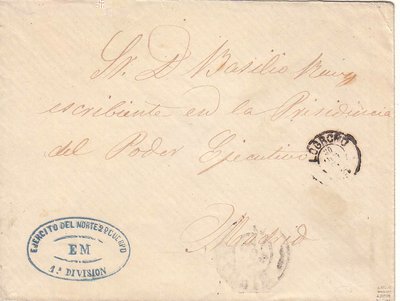 Sr. D. Basilio
escribiente en la Presidencia
del Poder Ejecutivo
LOGROÑO
Madrid
EJERCITO DEL NORTE 2º CUERPO
EM
1ª DIVISION